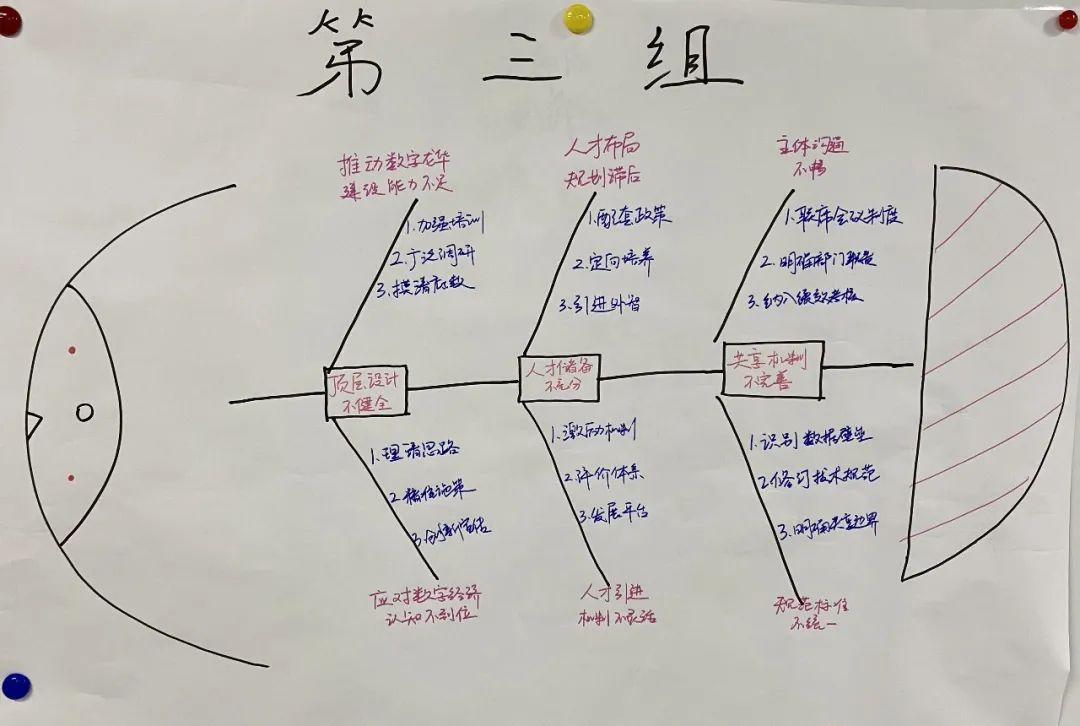 第三组
推动数字龙华
建设能力不足
1.加强培训
2.广泛调研
3.摸清底数
人才布局
规划滞后
1.配套政策
2.定向培养
3.引进外智
主体沟通
不畅
1.联席会议制度
2.明确部门职责
3.纳入绩效考核
顶层设计
不健全
人才储备
不充分
共享机制
不完善
1.理清思路
2.精准施策
3.
应对数字经济
认知不到位
1.激励机制
2.评价体系
3.发展平台
人才引进
机制不灵活
1.识别数据壁垒
2.修订技术规范
3.明确共享边界
规范标准
不统一